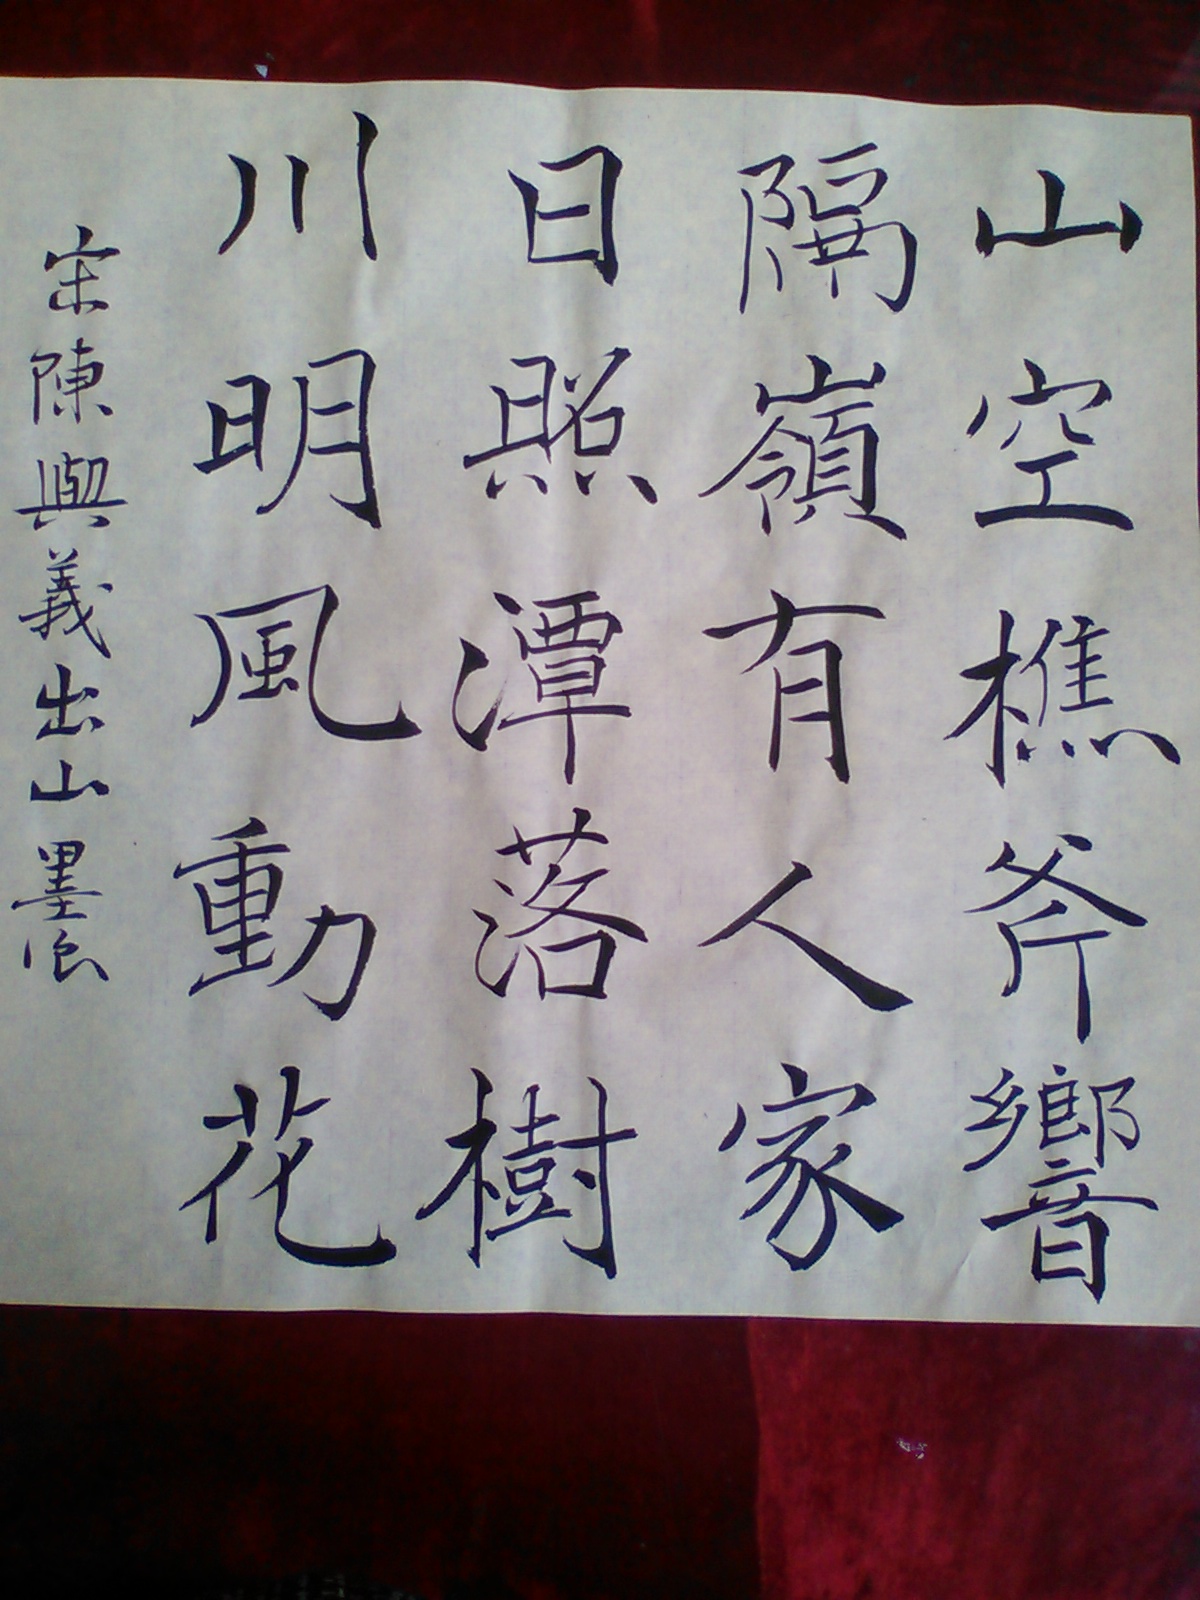 山空樵斧響
隔嶺有人家
日照潭落樹
川明風動花
宋陳與義出山墨